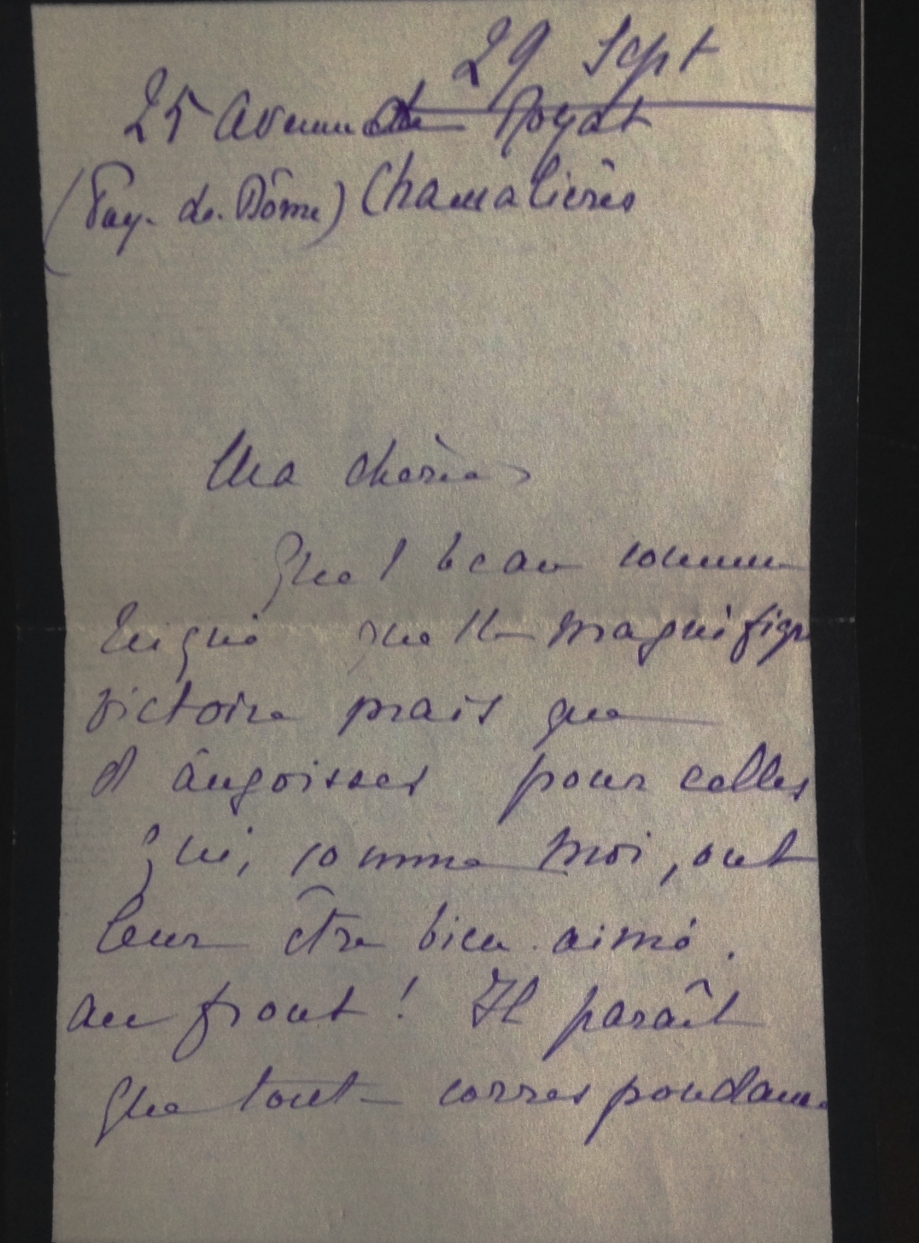 29 Sept
25 Avenue de Royat
(Puy-de-Dôme) Chamalières
Ma chérie,
Quel beau commu
niqué quelle magnifique
victoire mais que
d'angoisses pour celles
qui, comme moi, ont
leur être bien aimé
au front ! Il paraît
que toute correspondance